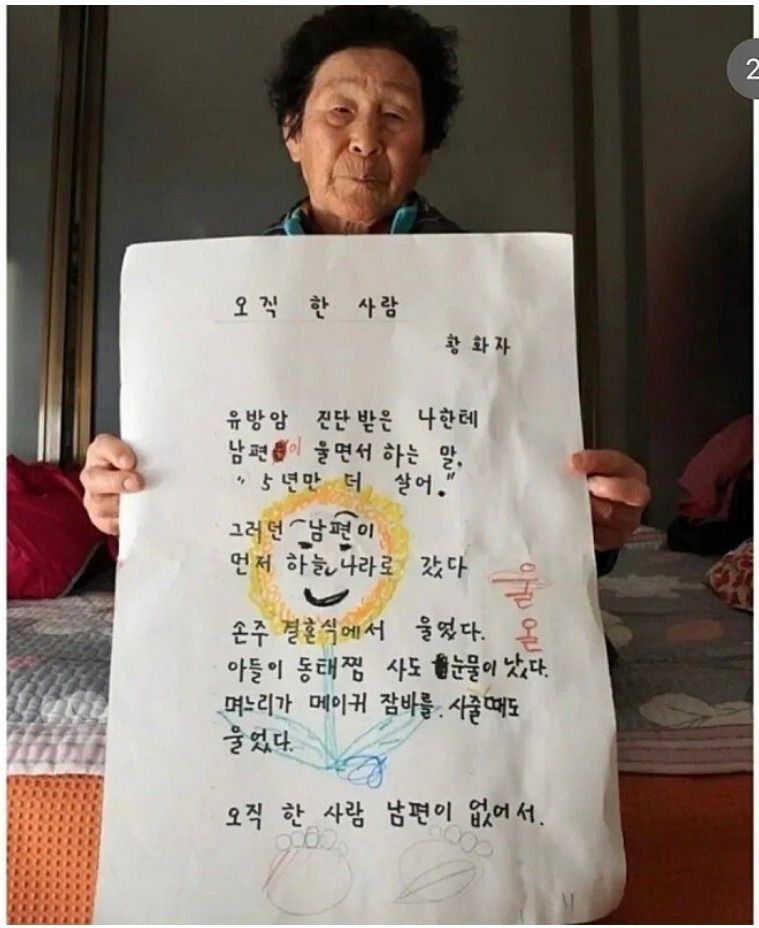 오직 한 사람
황화자
유방암 진단 받은 나한테
남편이 울면서 하는 말,
"5년만 더 살어."
그러던 남편이
먼저 하늘나라로 갔다
손주 결혼식에서 울었다.
아들이 동태찜 사도 눈물이 났다.
며느리가 메이커 잠바를 사줄때도
울었다.
오직 한 사람 남편이 없어서.
울
올
2